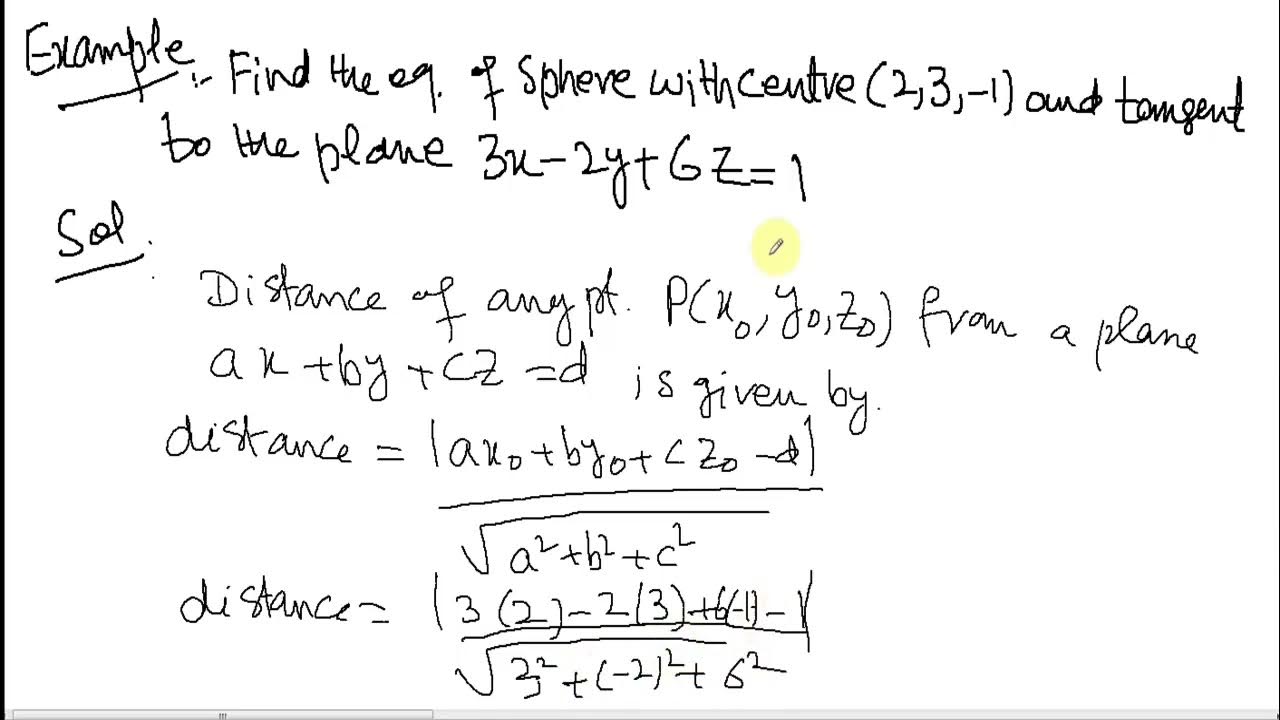 Example :- Find the eq. of Sphere with centre (2,3,-1) and tangent
to the plane 3x-2y+6z=1
Sol.
Distance of any pt. P(x₀,y₀,z₀) from a plane
ax+by+cz=d is given by.
distance = |ax₀+by₀+cz₀-d|
√a²+b²+c²
distance = |3(2)-2(3)+6(-1)-1|
√3²+(-2)²+6²